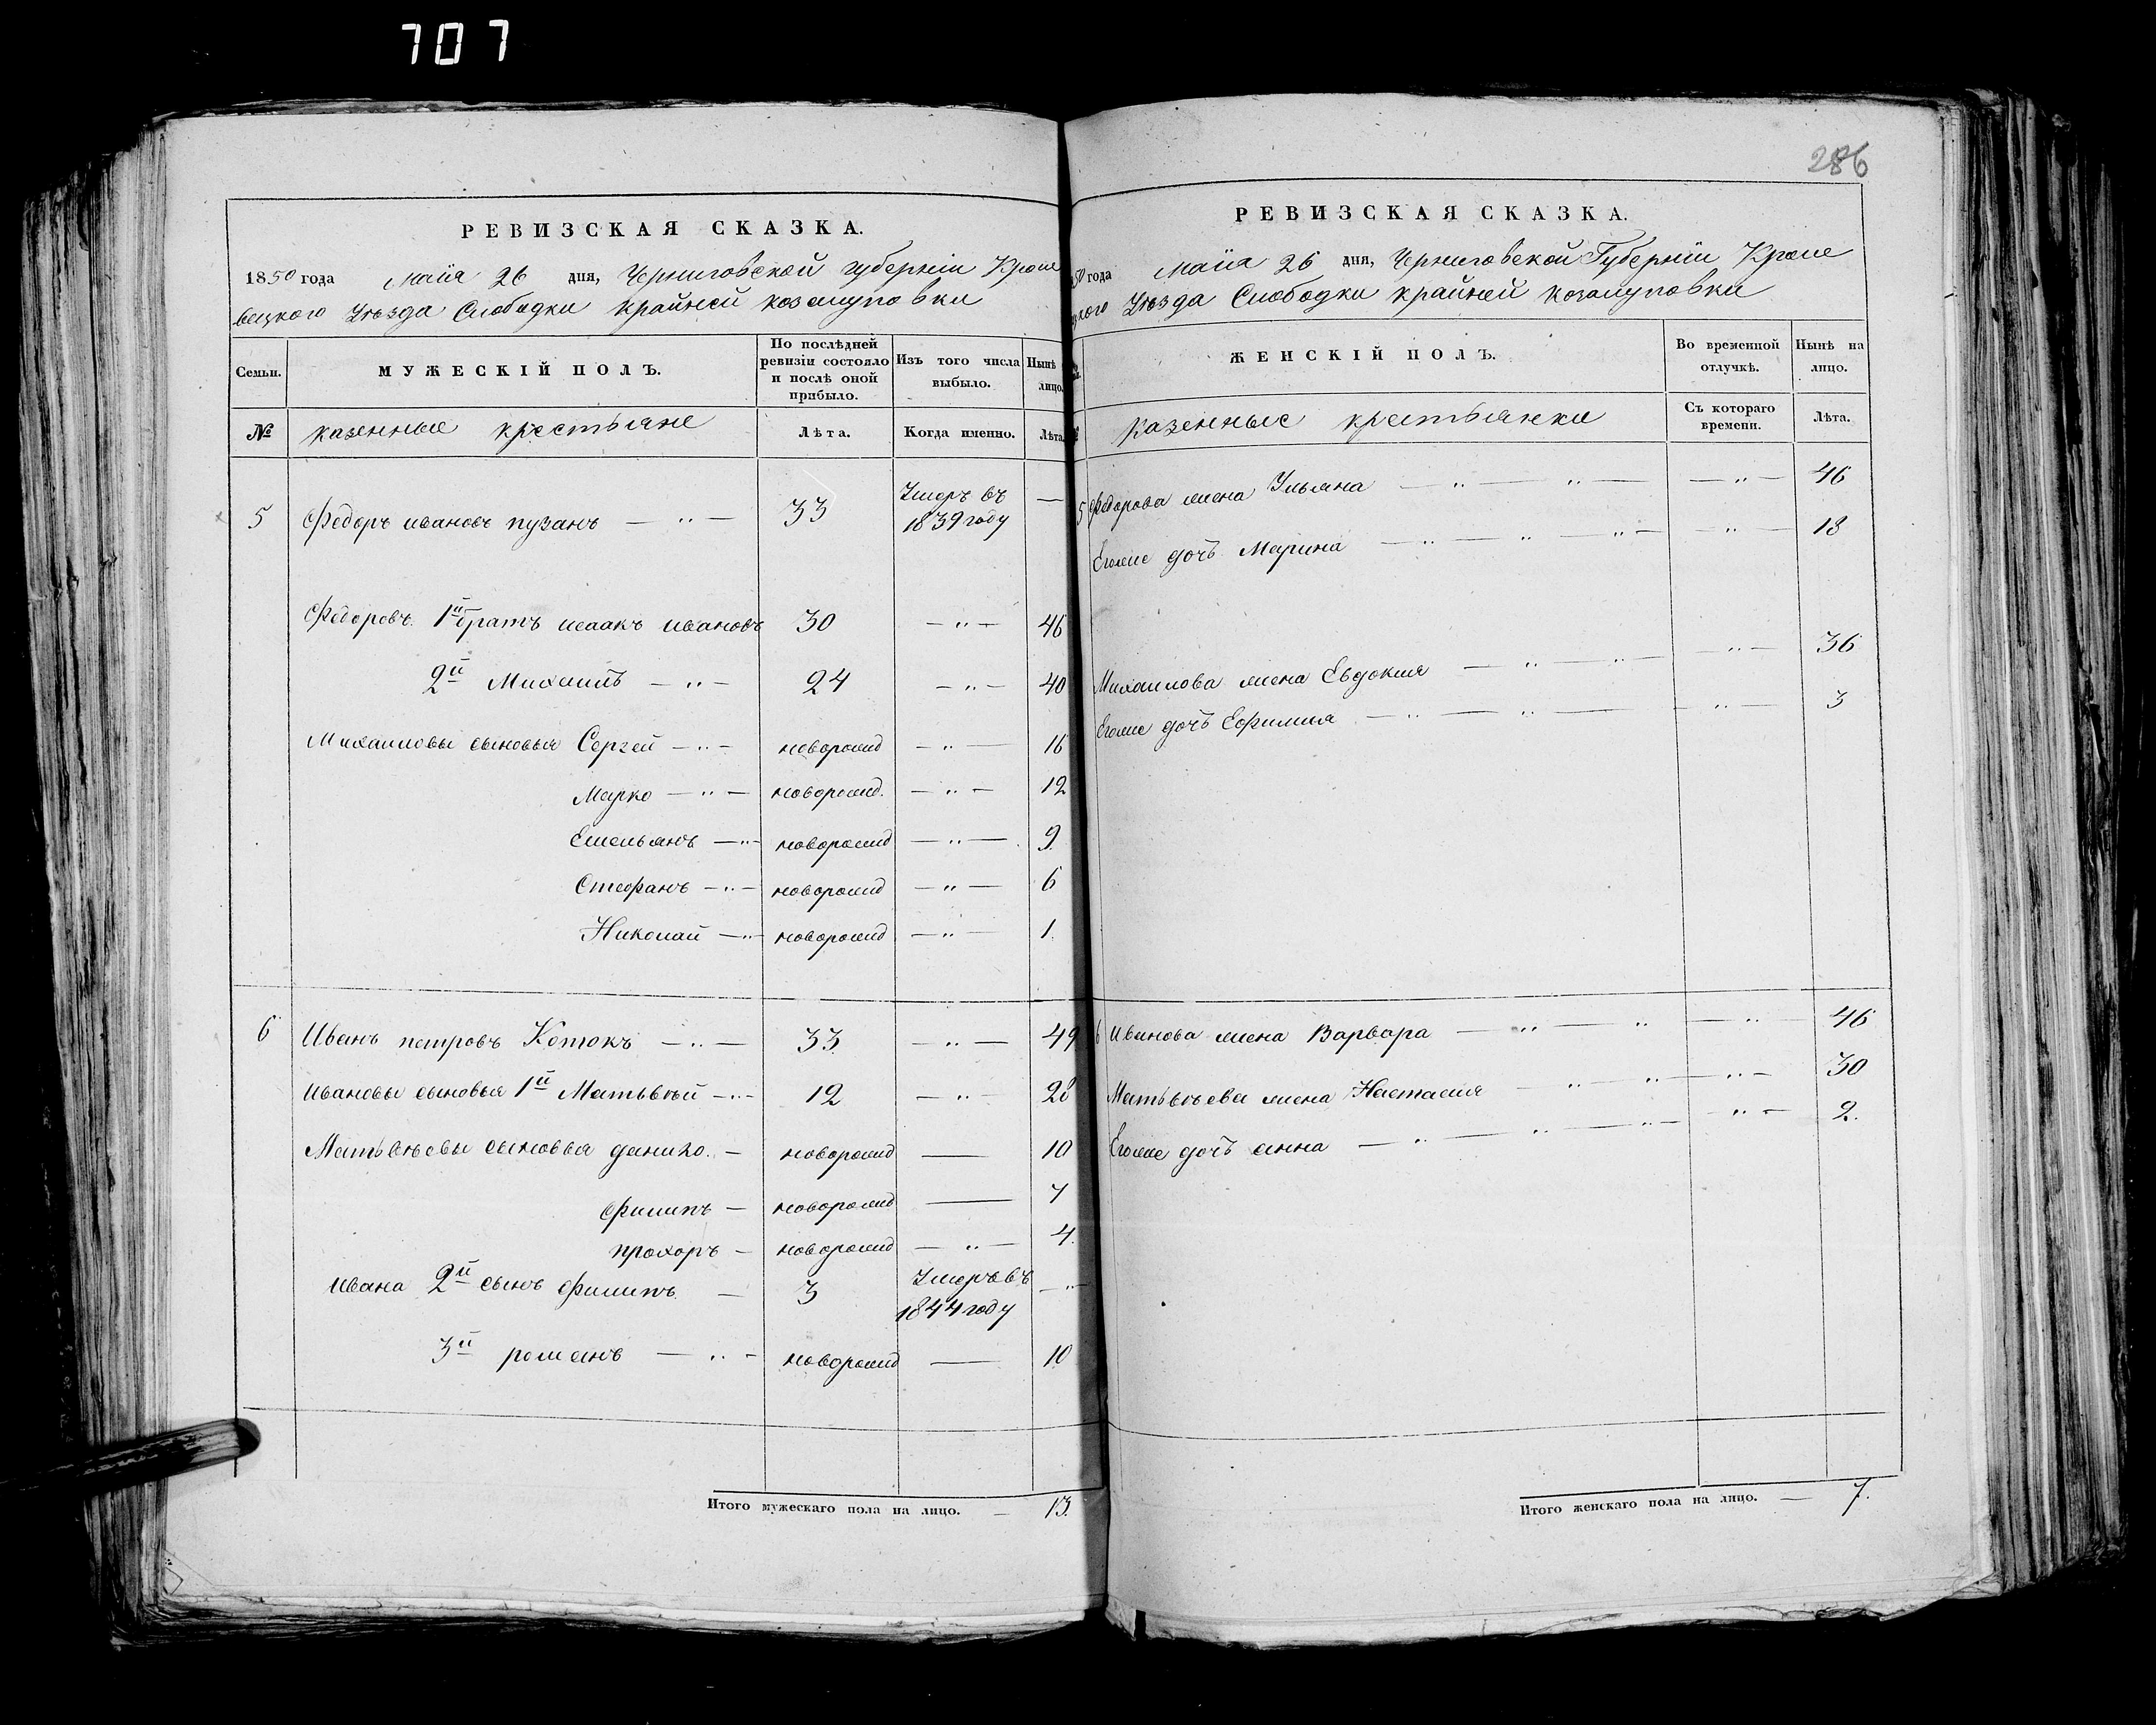 707
286
РЕВИЗСКАЯ СКАЗКА.
1850 года маiя 26 дня, Черниговской губернiи Кроле
вецкого Уѣзда Слободки крайней козацуповки
Семьи. МУЖЕСКІЙ ПОЛЪ. По послѣдней ревизіи состояло и послѣ оной прибыло. Изъ того числа выбыло. Нынѣ лицо.
№ казенные крестьяне Лѣта. Когда именно. Лѣта
5 Федоръ ивановъ пузанъ — „ — 33 Умеръ въ 1839 году —
Федоровъ 1й братъ исаакъ ивановъ 30 — „ — 46
2й Михаилъ — „ — 24 — „ — 40
Михаиловы сыновья Сергей — „ — новорожд — „ — 16
Марко — „ — новорожд. — „ — 12
Емельянъ — „ — новорожд — „ — 9.
Стефанъ — „ — новорожд — „ — 6
Николай — „ — новорожд — „ — 1.
6 Иванъ петровъ Котокъ — „ — 33. — „ — 49
Ивановы сыновья 1й Матьвѣй — „ — 12 — „ — 28
Матьвѣевы сыновья данило. — новорожд — 10
филипъ — новорожд — 7
прохоръ — новорожд — „ — 4.
ивана 2й сынъ филипъ — 3 Умеръ въ 1844 году — „ —
3й романъ — „ — новорожд — 10
Итого мужескаго пола на лицо. — 13.
РЕВИЗСКАЯ СКАЗКА.
50 года маiя 26 дня, Черниговской Губернiи Кроле
цкого Уѣзда Слободки крайней козацуповки
ЖЕНСКІЙ ПОЛЪ. Во временной отлучкѣ. Нынѣ на лицо.
казенные крестьянки Съ котораго времени. Лѣта.
5 Федорова жена Ульяна — „ — „ — — „ — 46
Егоже дочь Марина — „ — „ — „ — — „ — 18
Михаилова жена Евдокия — „ — „ — — „ — 36
Егоже дочь Ефимия — „ — „ — — „ — 3
6 Иванова жена Варвара — „ — „ — „ — 46
Матьвѣева жена Настасия — „ — „ — „ — 30
Егоже дочь анна — „ — „ — „ — „ — 2.
Итого женскаго пола на лицо. — 7.